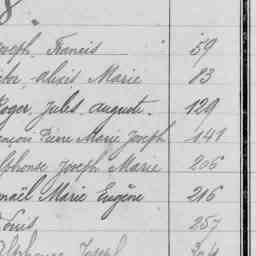 8
oseph, Francis 59
ctor, alexis Marie 83
Roger, Jules, auguste. 129
ançois Pierre Marie Joseph 141
lphonse Joseph Marie 206
maël Marie Eugène 216
Louis 257
Alphonse Joseph 304